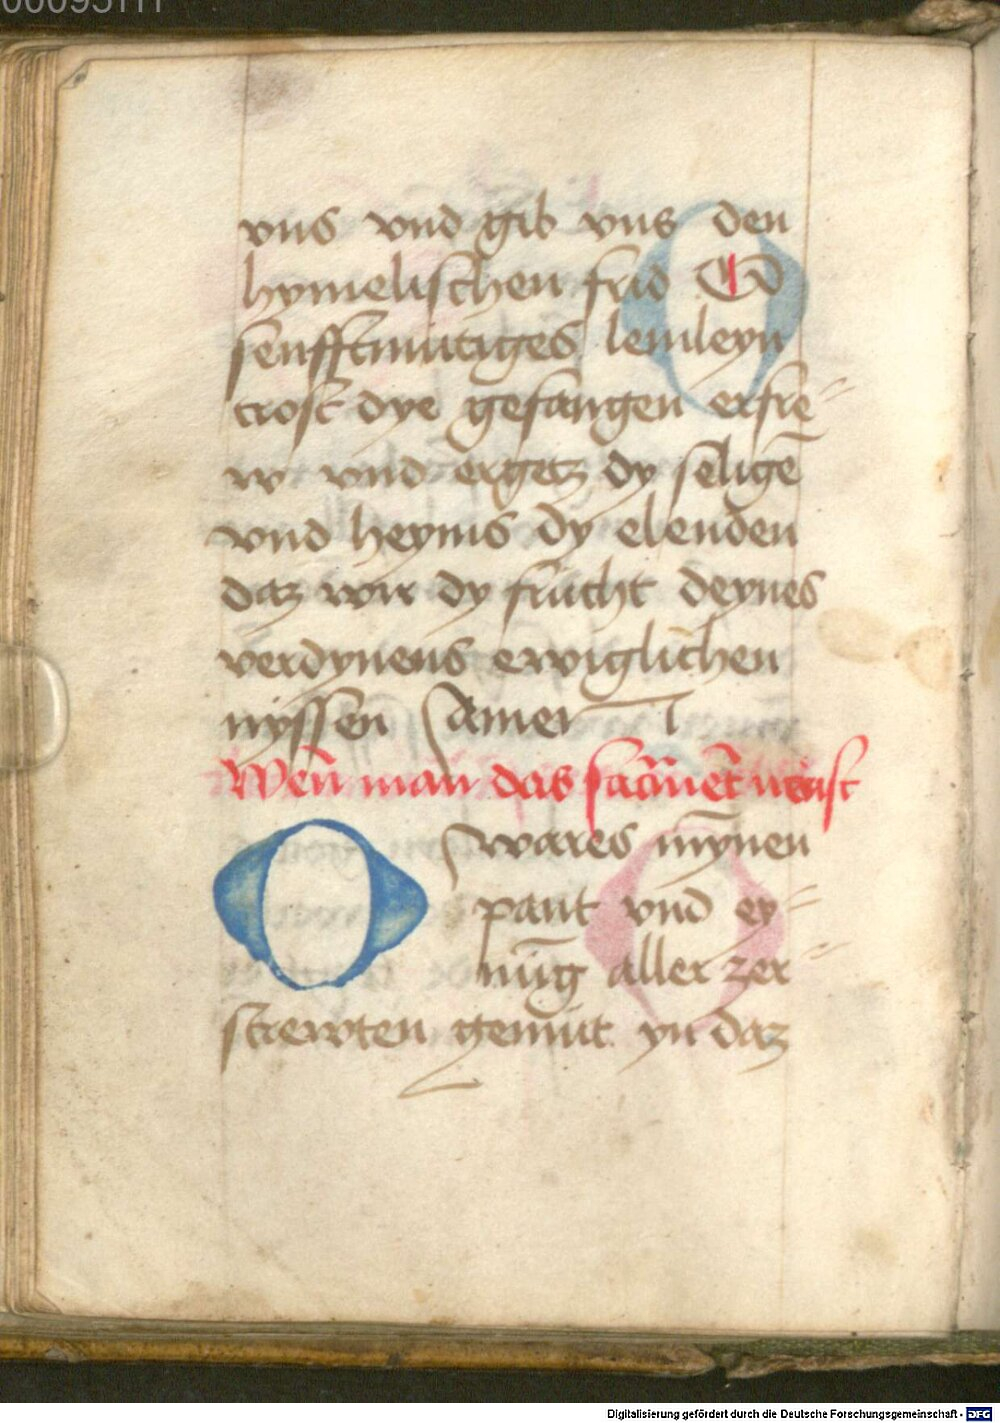 00095111
vns vnd gib vns den
hymelischen frid O
senfftmutiges lemleyn
trost dye gefangen erfre⸗
w vnd ergetz dy selige͂
vnd heyms dy elenden
daz wir dy frucht deynes
verdynens ewiglichen
nyssen Amen
Wen̄ man das sacrame͂t neust
O wares my̅nen
pant vnd ey⸗
nu̅g aller zer⸗
strewten gemut yn daz
Digitalisierung gefördert durch die Deutsche Forschungsgemeinschaft - DFG